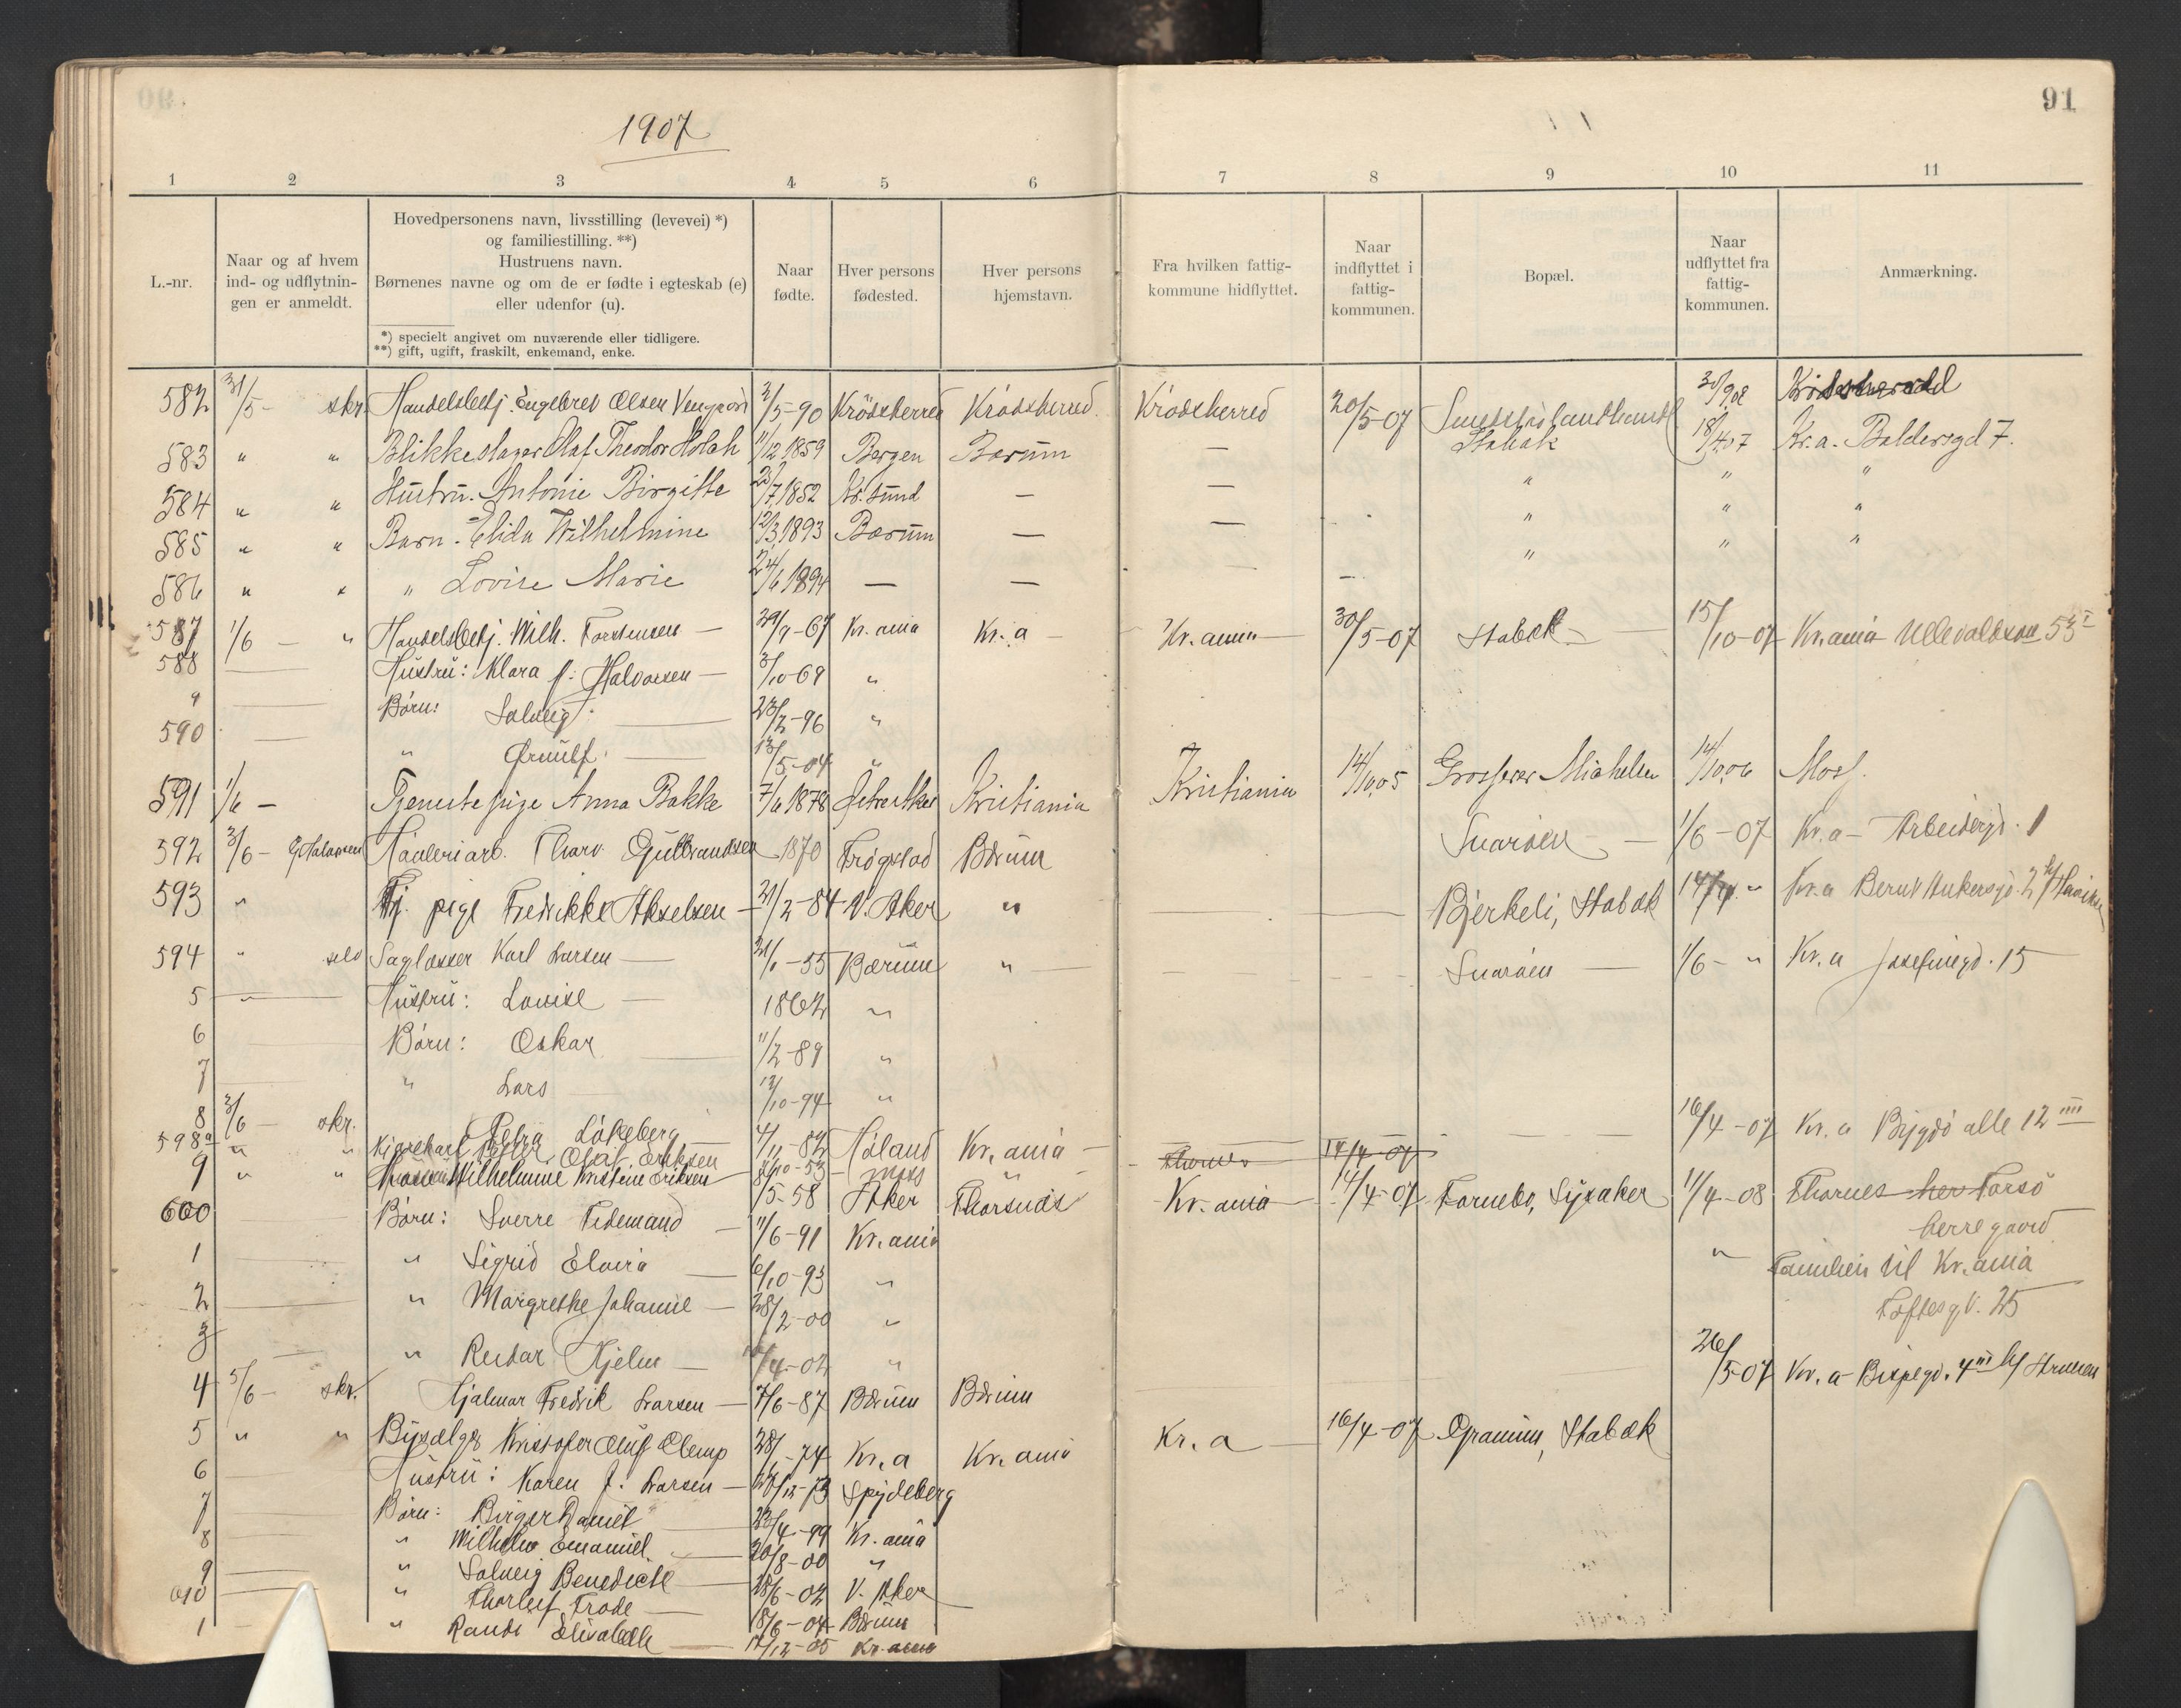 91
1907
1 2 3 4 5 6 7 8 9 10 11
L.-nr.
Naar og af hvem
ind- og udflytnin-
gen er anmeldt.
Hovedpersonens navn, livsstilling (levevei) *)
og familiestilling. **)
Hustruens navn.
Børnenes navne og om de er fødte i egteskab (e)
eller udenfor (u).
*) specielt angivet om nuværende eller tidligere.
**) gift, ugift, fraskilt, enkemand, enke.
Naar
fødte.
Hver persons
fødested.
Hver persons
hjemstavn.
Fra hvilken fattig-
kommune hidflyttet.
Naar
indflyttet i
fattig-
kommunen.
Bopæl.
Naar
udflyttet fra
fattig-
kommunen.
Anmærkning.
582 31/5- skr. Handelsbetj. Engebret Olsen 2/5-90 Krödsherred Krödsherred. Krödsherred 20/5-07 Landhandl 30/9 08
583 " " Blikkeslager Olaf Theodor 11/12 1859 Bergen Bærum — Stabæk 18/4 07 Kr.a. Baldersgd 7.
584 " " Hustru. Antonie Birgitte 25/7 1852 Kr.sund — — " " "
585 " " Barn. Elida Wilhelmine 12/3 1893 Bærum — — " " "
586 " " " Lovise Marie 24/6 1894 — — — " " "
587 1/6 — " Handelsbetj. Wilh. Torstensen — 29/9-67 Kr.ania Kr.a — Kr.ania — 30/5-07 Stabæk — 15/10-07 Kr.ania Ullevaldsvn 53 I
588 — Hustru: Klara f. Halvorsen — 3/10-69 "
9 — Børn: Solveig — 23/2-96 "
590 — " Ørnulf. — 13/5-04 "
591 1/6 — Tjenestepige Anna Bakke 7/6 1878 Kristiania Kristiania 14/10 05 Grosserer Michelsen 14/10 06 Moss.
592 3/6- Haaleriarb. Thorv. Gulbrandsen 1870 Trøgstad Bærum Snarøen — 1/6-07 Kr.a — Arbeidergd. 1
593 " Tj. pige Fredrikke Akselsen — 21/2-84 V. Aker " — Bjerkeli, Stabæk 14/4 " Kr.a Bernt Ankersgd. 2
594 " selv Karl Larsen — 21/1-55 Bærum " — Snarøen — 1/6- " Kr.a Josefinegd. 15
5 " Hustru: Lovise — 1862 "
6 — Børn: Oskar — 11/2-89 "
7 — " Lars — 13/10-94 "
8 3/6 — skr. Petra Løkeberg — 4/11-82 Høland Kr.ania — — — 16/4-07 Kr.a Bygdö alle 12 IIII
598a " " Olaf Eriksen 8/10-53 Moss " Thorsnes 14/4-07
9 " " Wilhelmine Kristine Eriksen /5-58 Aker Thorsnæs Kr.ania 14/4-07 Fornebo, Lysaker 11/4-08 Thorsnes her Torsö
600 — Børn: Sverre Tidemand — 11/6-91 Kr.ania herregaard
1 — " Sigrid Elvira — 6/10-93 " " Familien til Kr.ania
2 — " Margrethe Johanne — 28/2-00 " Toftesgt. 25
3 — " Reidar Hjelm — /4-02 "
4 5/6- skr. Hjalmar Fredrik Larsen — 7/6-87 Bærum Bærum 26/5-07 Kr.a Bispegd. 4 III
5 " " Kristofer Oluf 28/ -74 Kr.a Kr.ania Kr.a — 16/4-07 Granum, Stabæk
6 — Hustru: Karen f. Larsen — 28/12-73 Spydeberg
7 — Børn: Birger Daniel — 23/4-99 Kr.ania
8 — " Wilhelm Emanuel — 30/8-00 "
9 — " Solveig Benedicte — 28/6-02 V. Aker
610 — " Thorleif Frode — 18/6-04 Bærum
1 — " Randi Elisabeth — 17/12-05 Kr.ania